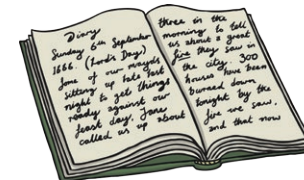 Diary
Sunday 6th September
1666. (Lord's Day)
Some of our mayds
sitting up late last
night to get things
ready against our
feast day, Jane
called us up about
three in the
morning, to tell
us about a great
fire they saw in
the city. 300
houses have been
burned down
tonight by the
fire we saw,
and that now